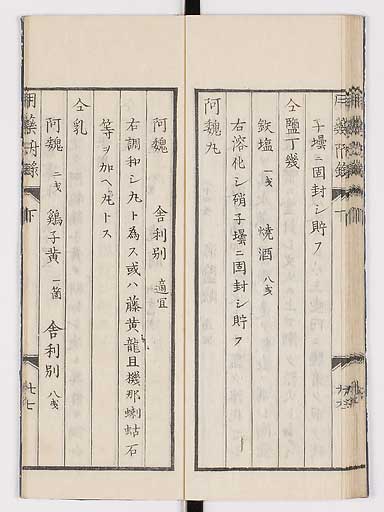 子壜ニ固封シ貯フ
仝鹽丁幾
鉄塩 一戔 焼酒 八戔
右溶化シ硝子壜ニ固封シ貯フ
阿魏丸
阿魏 舎利別 適宜
右調和シ丸ト為ス或ハ藤黄龍且機那蝲蛄石
等ヲ加ヘ丸トス
仝乳
阿魏 二戔 鷄子黄 一箇 舎利別 八戔
下
七七